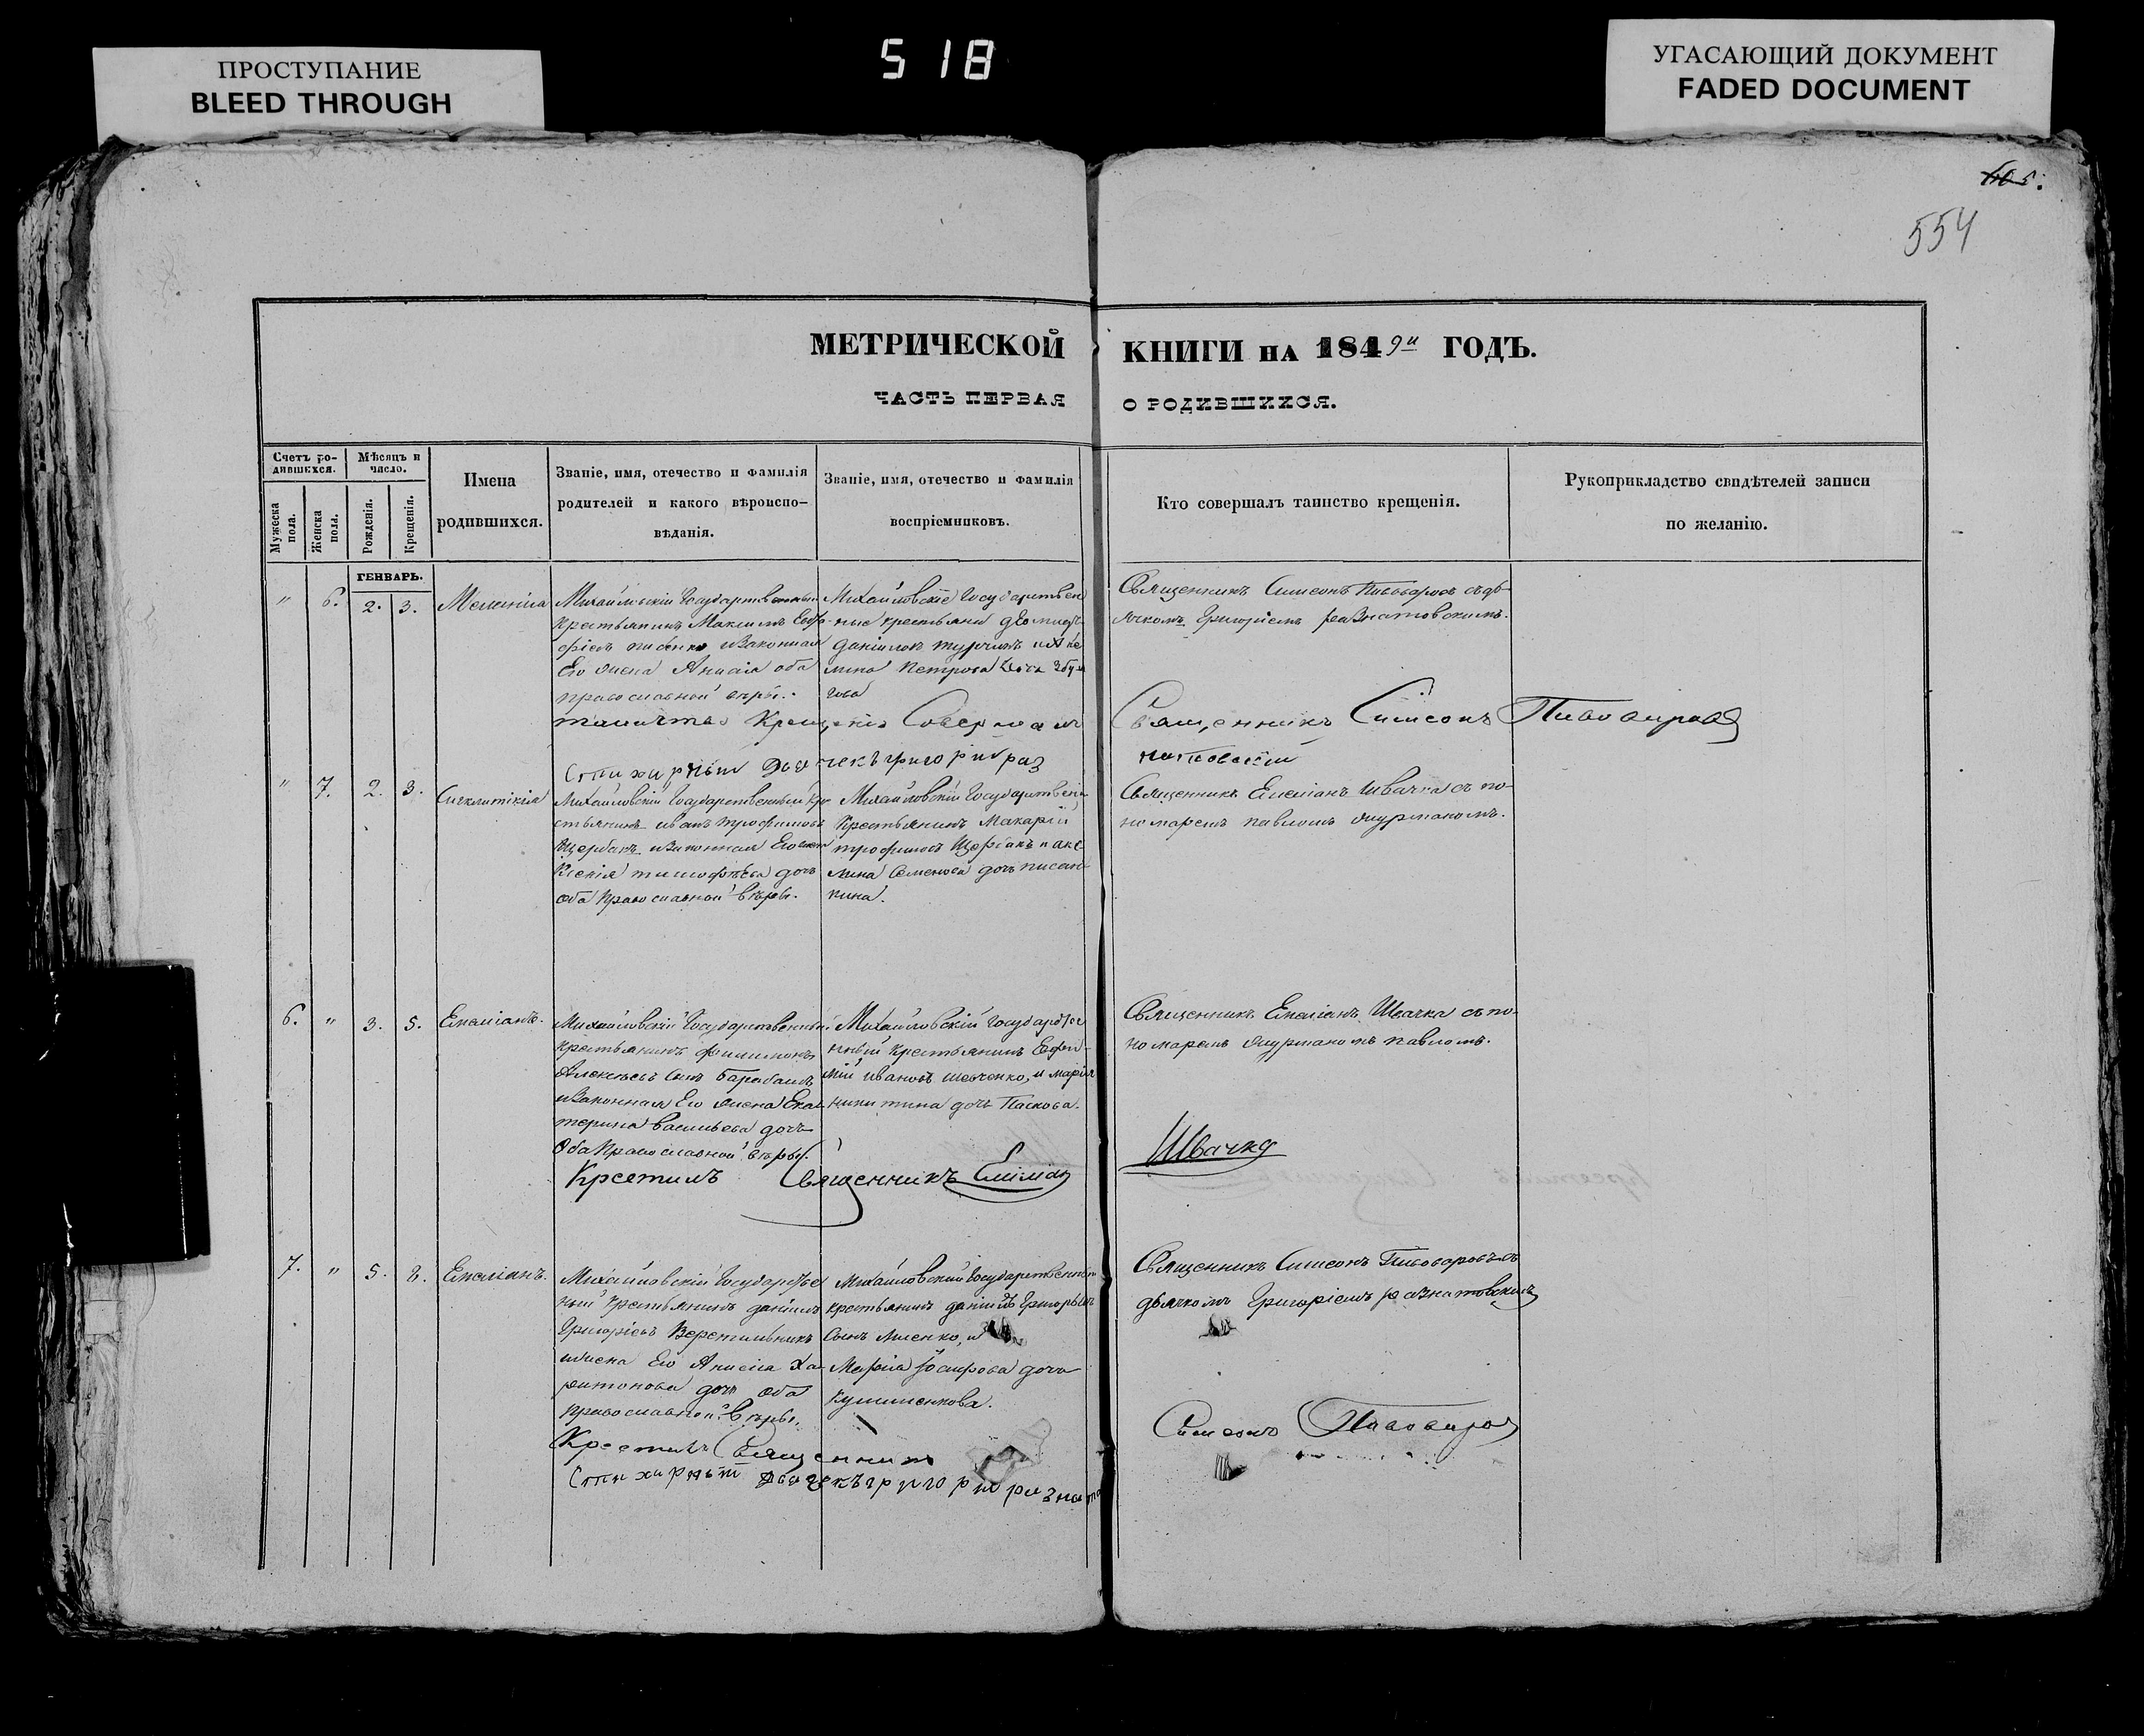 ПРОСТУПАНИЕ
BLEED THROUGH
518
УГАСАЮЩИЙ ДОКУМЕНТ
FADED DOCUMENT
554
МЕТРИЧЕСКОЙ КНИГИ НА 1849й ГОДЪ.
ЧАСТЬ ПЕРВАЯ О РОДИВШИХСЯ.
Счетъ ро-
дившихся.
Мужеска
пола.
Женска
пола.
Мѣсяцъ и
число.
Рожденія.
Крещенія.
Имена
родившихся.
Званіе, имя, отечество и фамилія
родителей и какого вѣроиспо-
вѣданія.
Званіе, имя, отечество и фамилія
воспріемниковъ.
Кто совершалъ таинство крещенія.
Рукоприкладство свидѣтелей записи
по желанію.
ГЕНВАРЬ.
" 6. 2. 3. Меланіа
Михайловскій Государственный
Крестьянинъ Максимъ
и законная
Его жена Анисіа оба
православной вѣры.
Михайловскіе Государствен
ные крестьяне
Петрова дочь
Священникъ Симеонъ Пивоваровъ съ дь-
ячкомъ Григоріемъ Разнатовскимъ.
Крещенія Совершалъ Священникъ Симеонъ Пивоваровъ
Стихарный Дьячекъ Григорій Раз
натовскій
" 7. 2. 3. Синклитикія
Михайловскій Государственный Кре
стьянинъ Иванъ Трофимовъ
Щербакъ и законная Его жена
дочь
оба Православной вѣры.
Михайловскій Государствен
Крестьянинъ Макарій
Трофимовъ Щербакъ и Аке-
лина Семенова дочь Писан-
кина.
Священникъ Емеліанъ Швачка съ по-
номаремъ Павломъ Журманомъ.
6. " 3. 5. Емеліанъ.
Михайловскій Государственный
крестьянинъ Филимонъ
Алексѣевъ Сынъ Барабашъ
и законная Его жена Ека-
терина Васильева дочь
Оба Православной вѣры.
Михайловскій Государстве
нный Крестьянинъ Ефи-
мій Ивановъ Шевченко, и Марія
Никитина дочь Паскова.
Священникъ Емеліанъ Швачка съ по-
номаремъ Журманомъ Павломъ.
Крестилъ Священникъ Емеліан
Швачка
7. " 5. 8. Емеліанъ.
Михайловскій Государстве
ный Крестьянинъ Даніилъ
Григоріевъ Веретильникъ
и жена Его Анисіа Ха-
ритонова дочь оба
Православной Вѣры.
Михайловскій Государственный
Крестьянинъ Даніилъ Григорьевъ
Сынъ Лисенко, и
Марія дочь
Кушименкова.
Священникъ Симеонъ Пивоваровъ съ
дьячкомъ Григоріемъ Разнатовскимъ
Крестилъ Священникъ
Симеонъ Пивоваров
Стихарный Дьячекъ Григорій Разнато